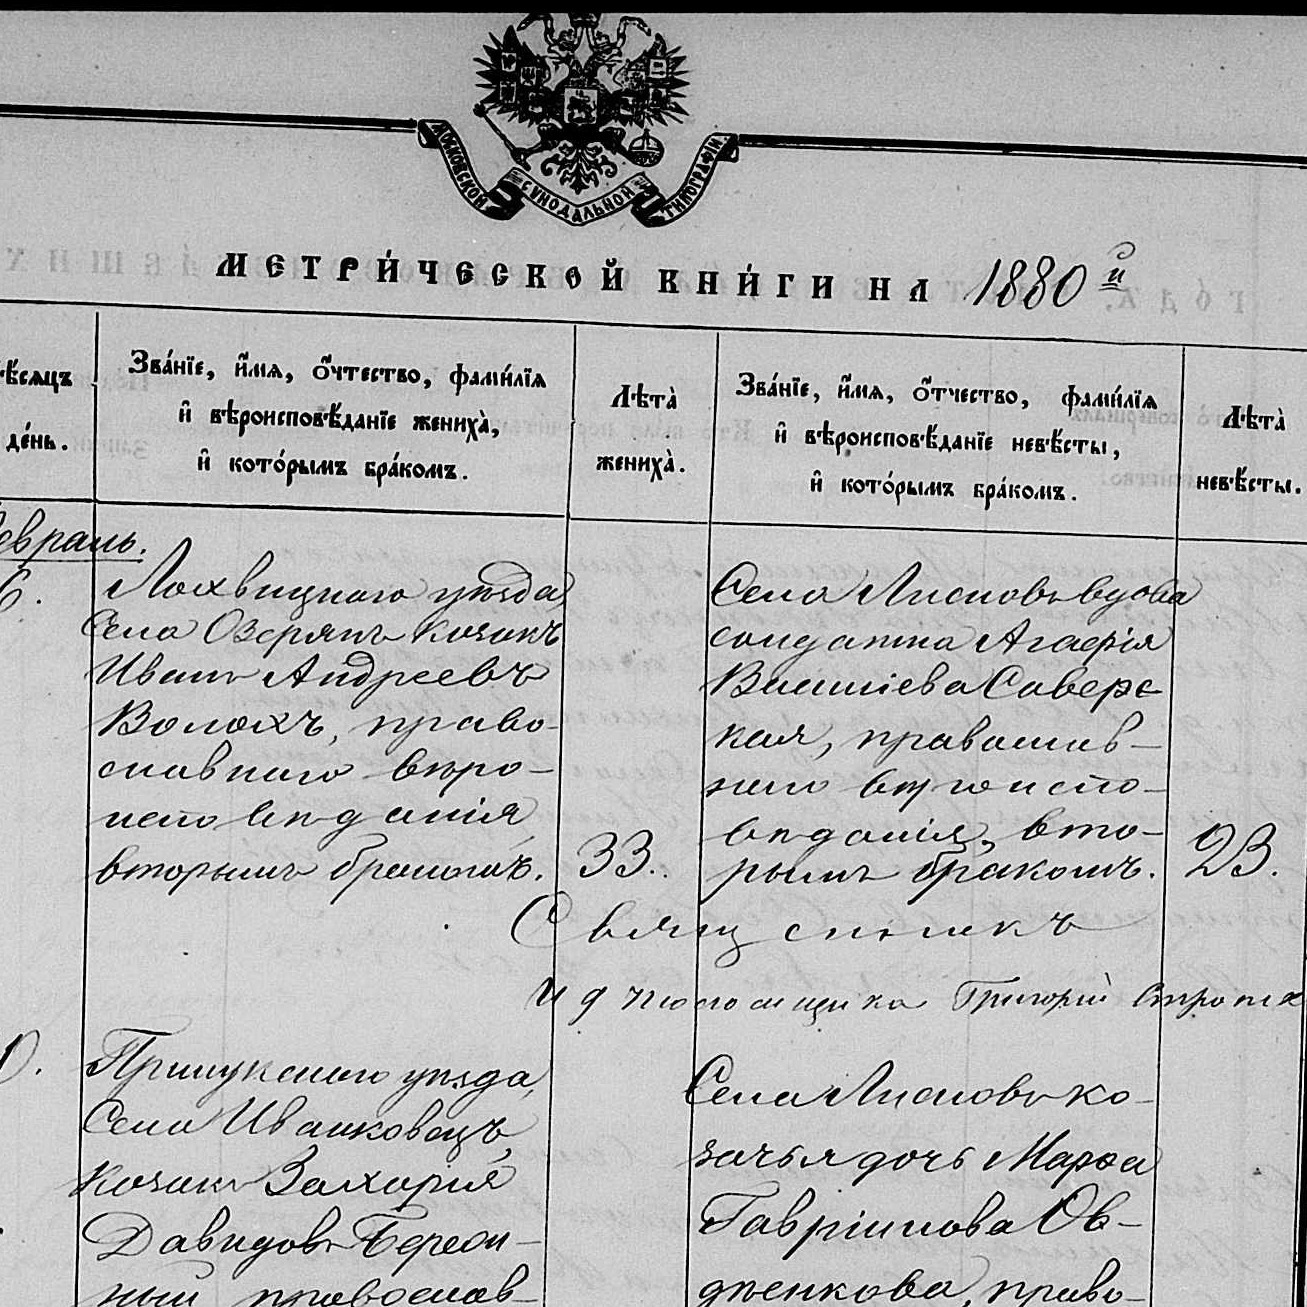 МОСКОВСКОЙ СѴНОДАЛЬНОЙ ТИПОГРАФІИ.
МЕТРИ́ЧЕСКОЙ КНИ́ГИ НА 1880 й
мѣ́сяцъ
де́нь.
Зва́нїе, и҆́мя, ѻ҆́тчество, фами́лїя
и҆ вѣроисповѣ́данїе жениха̀,
и҆ кото́рымъ бра́комъ.
Лѣ́та
жениха̀.
Зва́нїе, и҆́мя, ѻ҆́тчество, фами́лїя
и҆ вѣроисповѣ́данїе невѣ́сты,
и҆ кото́рымъ бра́комъ.
Лѣ́та
невѣ́сты.
Февраль.
6.
Лохвицкаго уѣзда
Села Озерянъ козакъ
Иванъ Андреевъ
Волохъ, право-
славнаго вѣро-
исповѣданія,
вторымъ бракомъ.
33.
Села Лисновъ вдова
солдатка Агафія
Василіева Саверс
кая, православ-
наго вѣроиспо-
вѣданія, вто-
рымъ бракомъ.
23.
Священникъ
Идчтоташщика Григорій
Прилукскаго уѣзда,
Села Иванковецъ,
козакъ Захарія
Давидовъ Берез
ный православ-
Села Лисновъ ко-
зачья дочь Марѳа
Гавріилова Ов-
дѣенкова, право-